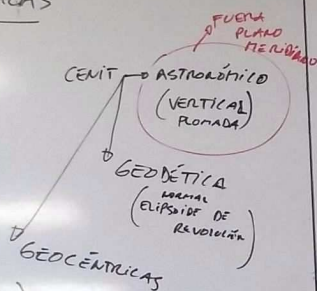 ICAS
FUERA
PLANO
MERIDIANO
CENIT ASTRONÓMICO
(VERTICAL)
PLOMADA
GEODÉTICA
(NORMAL
ELIPSOIDE DE
REVOLUCIÓN)
GEOCÉNTRICAS